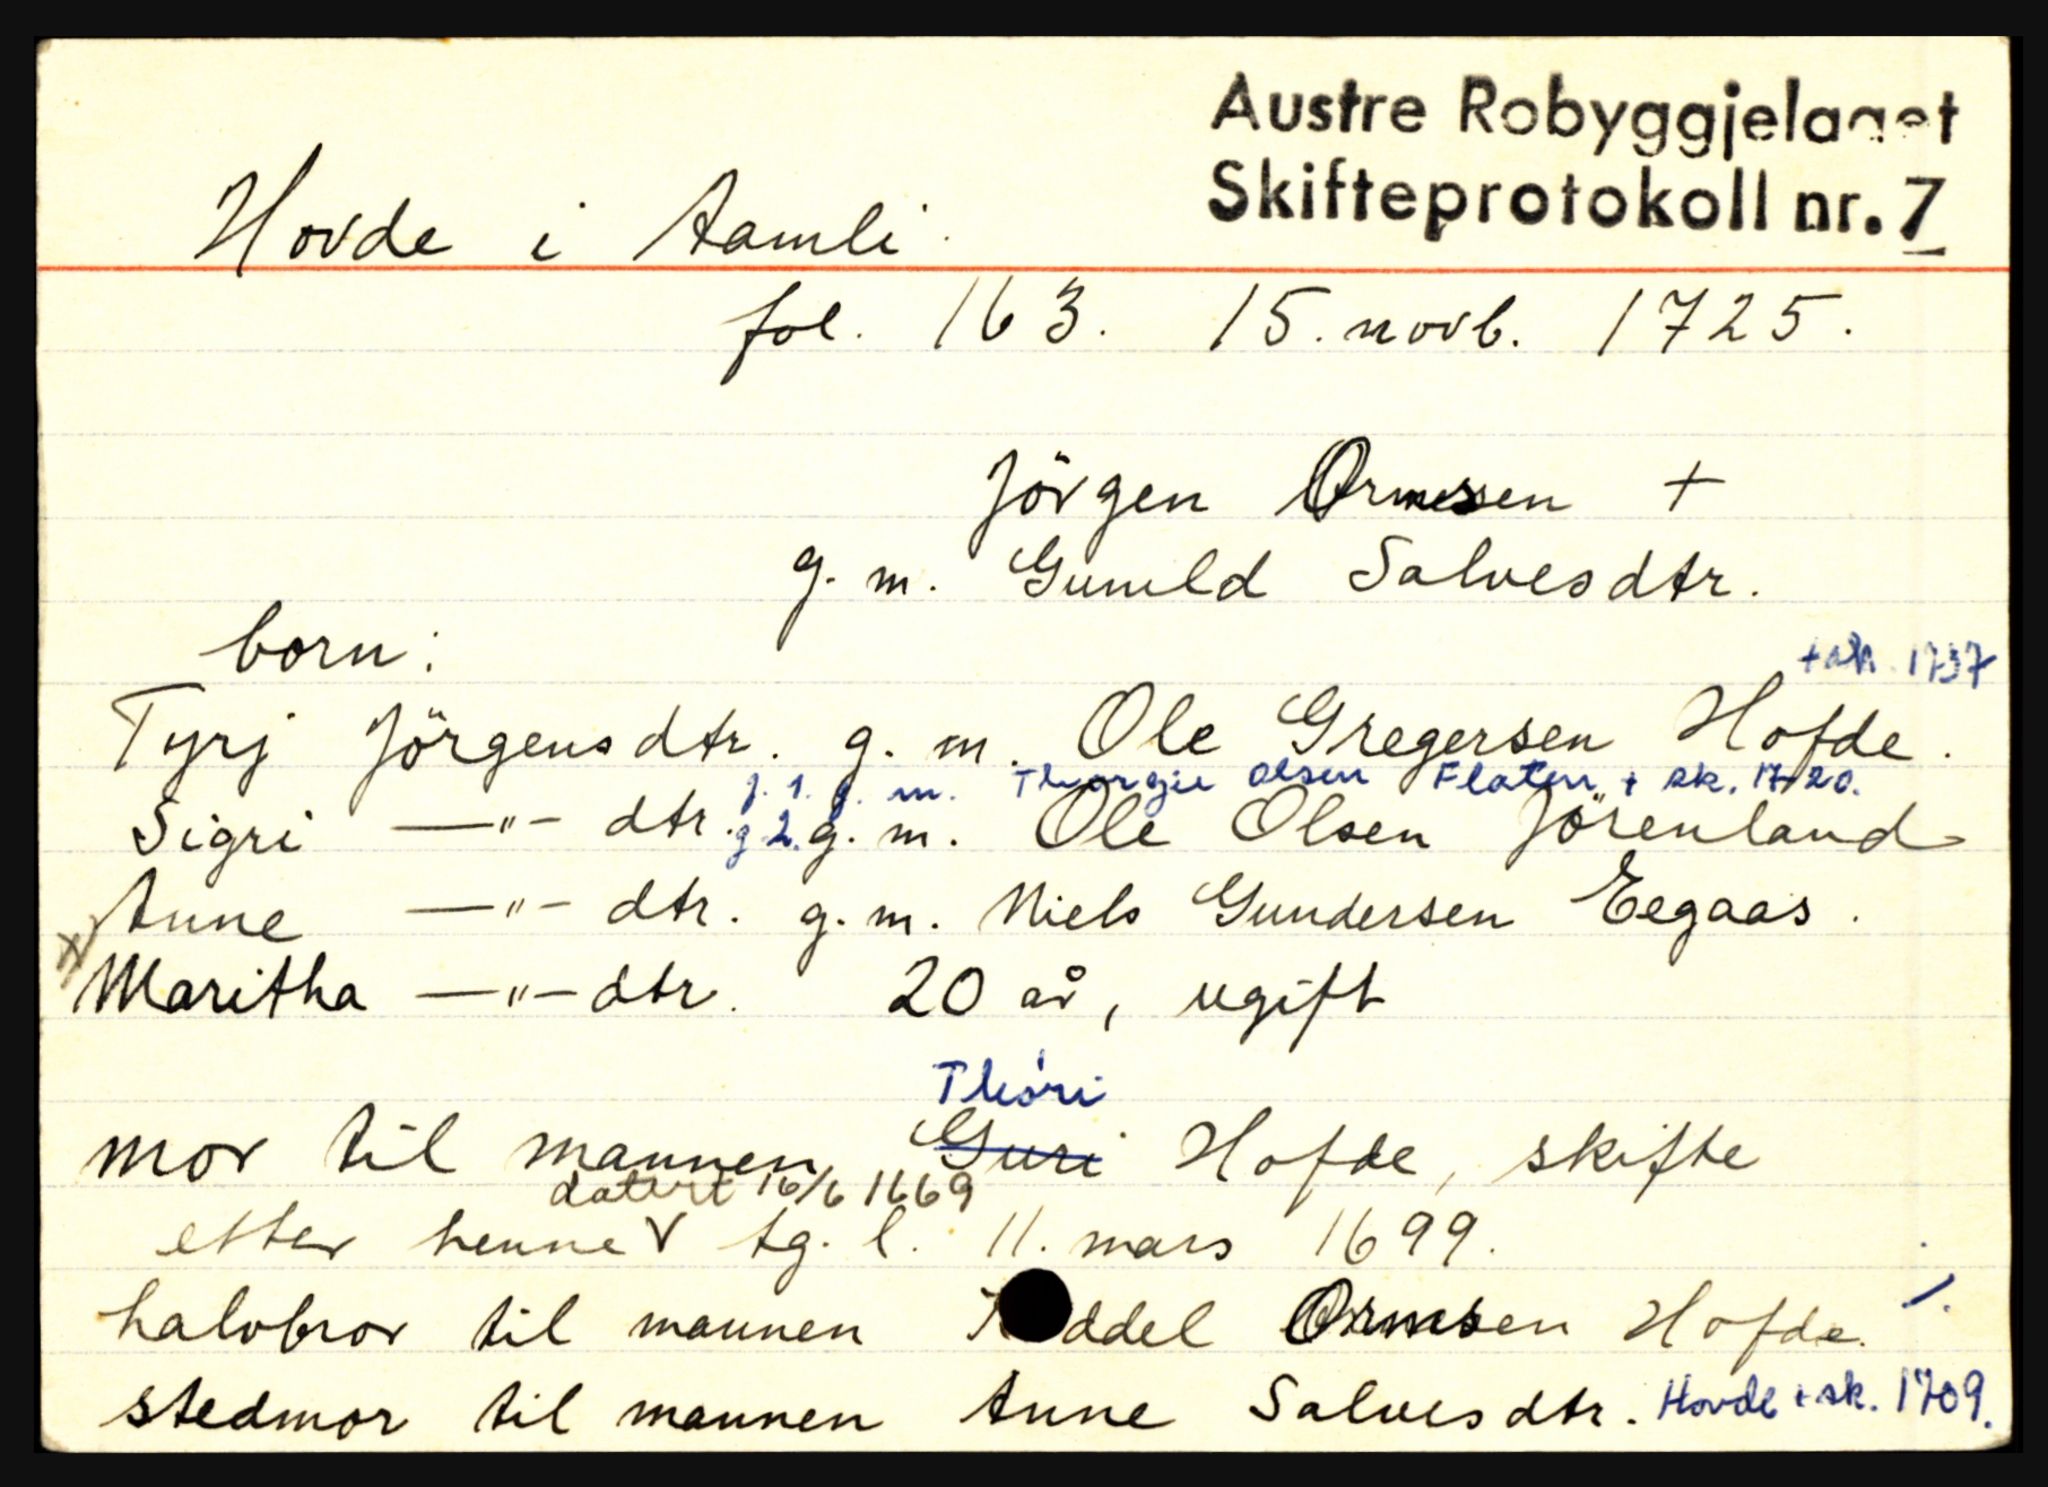 Austre Robyggjelaget
Skifteprotokoll nr. 7
Hovde i Aamli.
fol. 163. 15. novb. 1725.
Jörgen Ormssen +
g. m. Gunild Salvesdtr.
born:
+ sk. 1737
Tyrj Jörgensdtr. g. m. Ole Gregersen Hofde.
g. 1. g. m. Thorgie Olsen Flaten + sk. 1720.
Sigri —"— dtr. g 2. g. m. Ole Olsen Jörenland
Anne —"— dtr. g. m. Niels Gundersen Eegaas.
x Maritha —"— dtr. 20 år, ugift
Thori
mor til mannen Guri Hofde, skifte
datert 16/6 1669
etter henne V tg. l. 11. mars 1699.
halvbror til mannen ddel Ormsen Hofde.
stedmor til mannen Anne Salvesdtr. Hovde + sk. 1709.